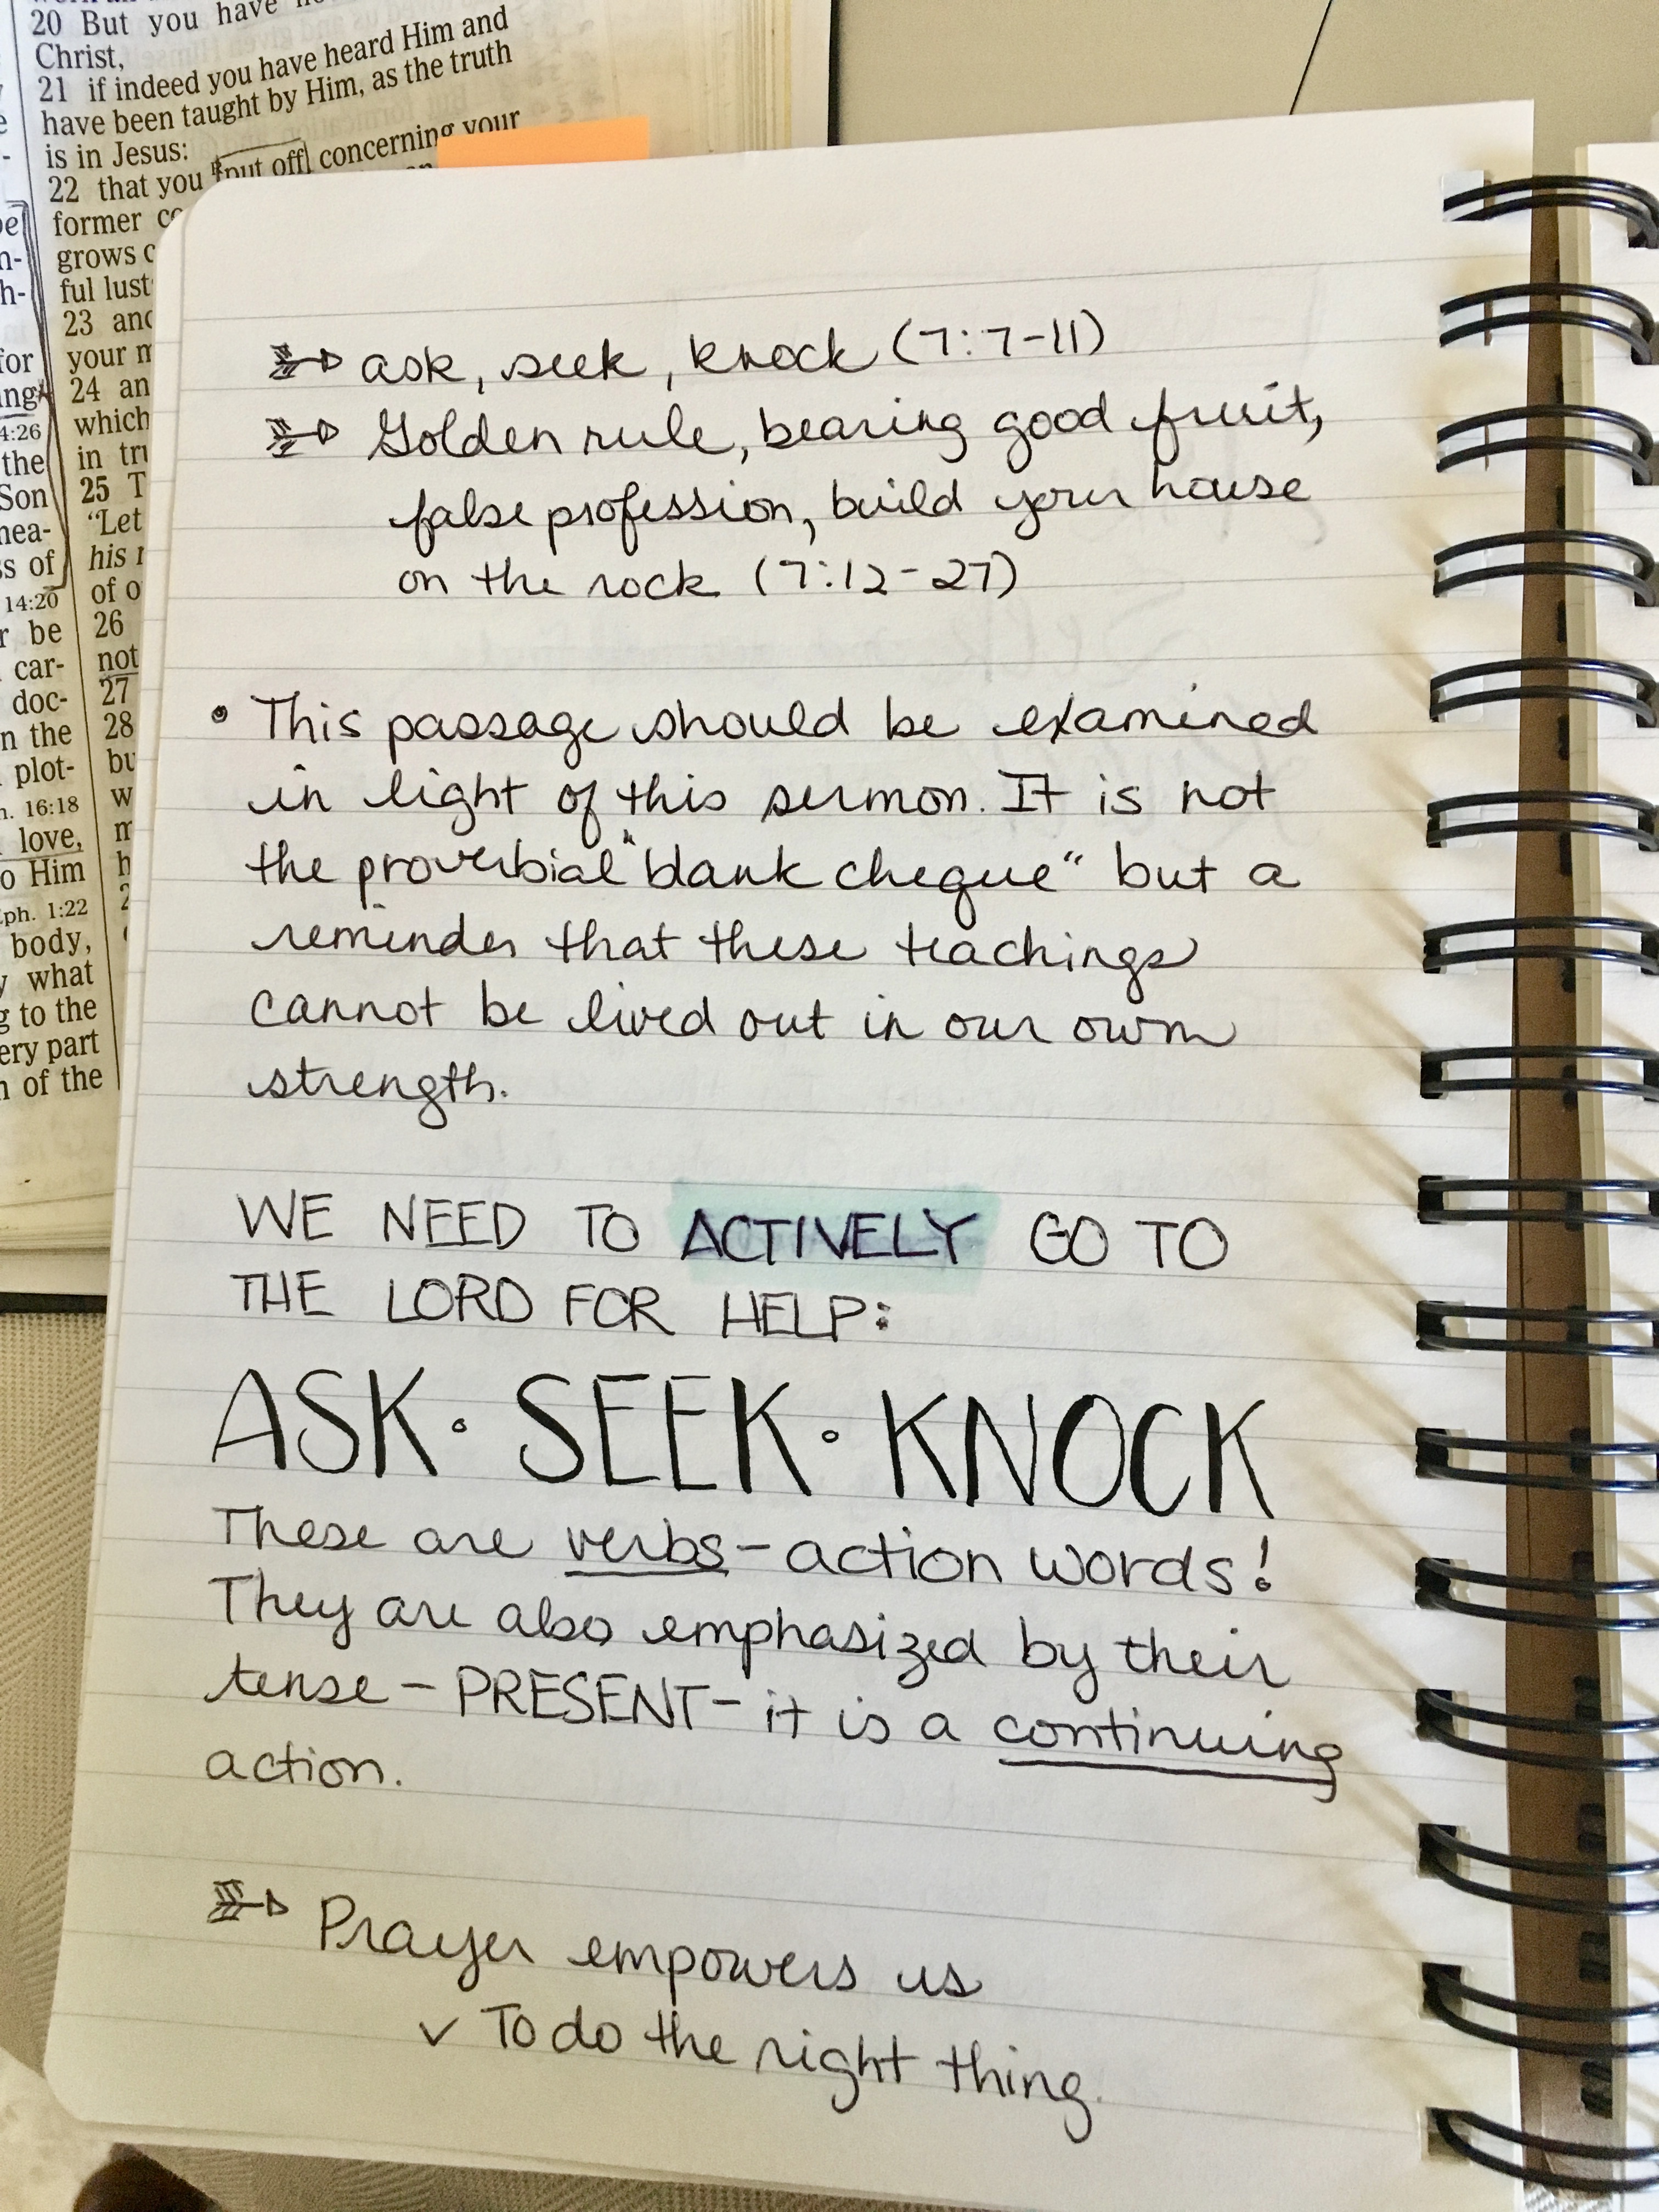 20 But you have
Christ,
21 if indeed you have heard Him and
have been taught by Him, as the truth
is in Jesus:
22 that you put off concerning your
former
grows
ful lust
23
your
24
which
in
25
"Let
his
of
26
not
27
28
for
4:26
the
Son
of
14:20
be
car-
doc-
the
plot-
16:18
love,
Him
Eph. 1:22
body,
what
to the
part
of the
ask, seek, knock (7:7-11)
Golden rule, bearing good fruit,
false profession, build your house
on the rock (7:12-27)
• This passage should be examined
in light of this sermon. It is not
the proverbial "blank cheque" but a
reminder that these teachings
cannot be lived out in our own
strength.
WE NEED TO ACTIVELY GO TO
THE LORD FOR HELP:
ASK · SEEK · KNOCK
These are verbs - action words!
They are also emphasized by their
tense - PRESENT - it is a continuing
action.
Prayer empowers us
✓ To do the right thing.